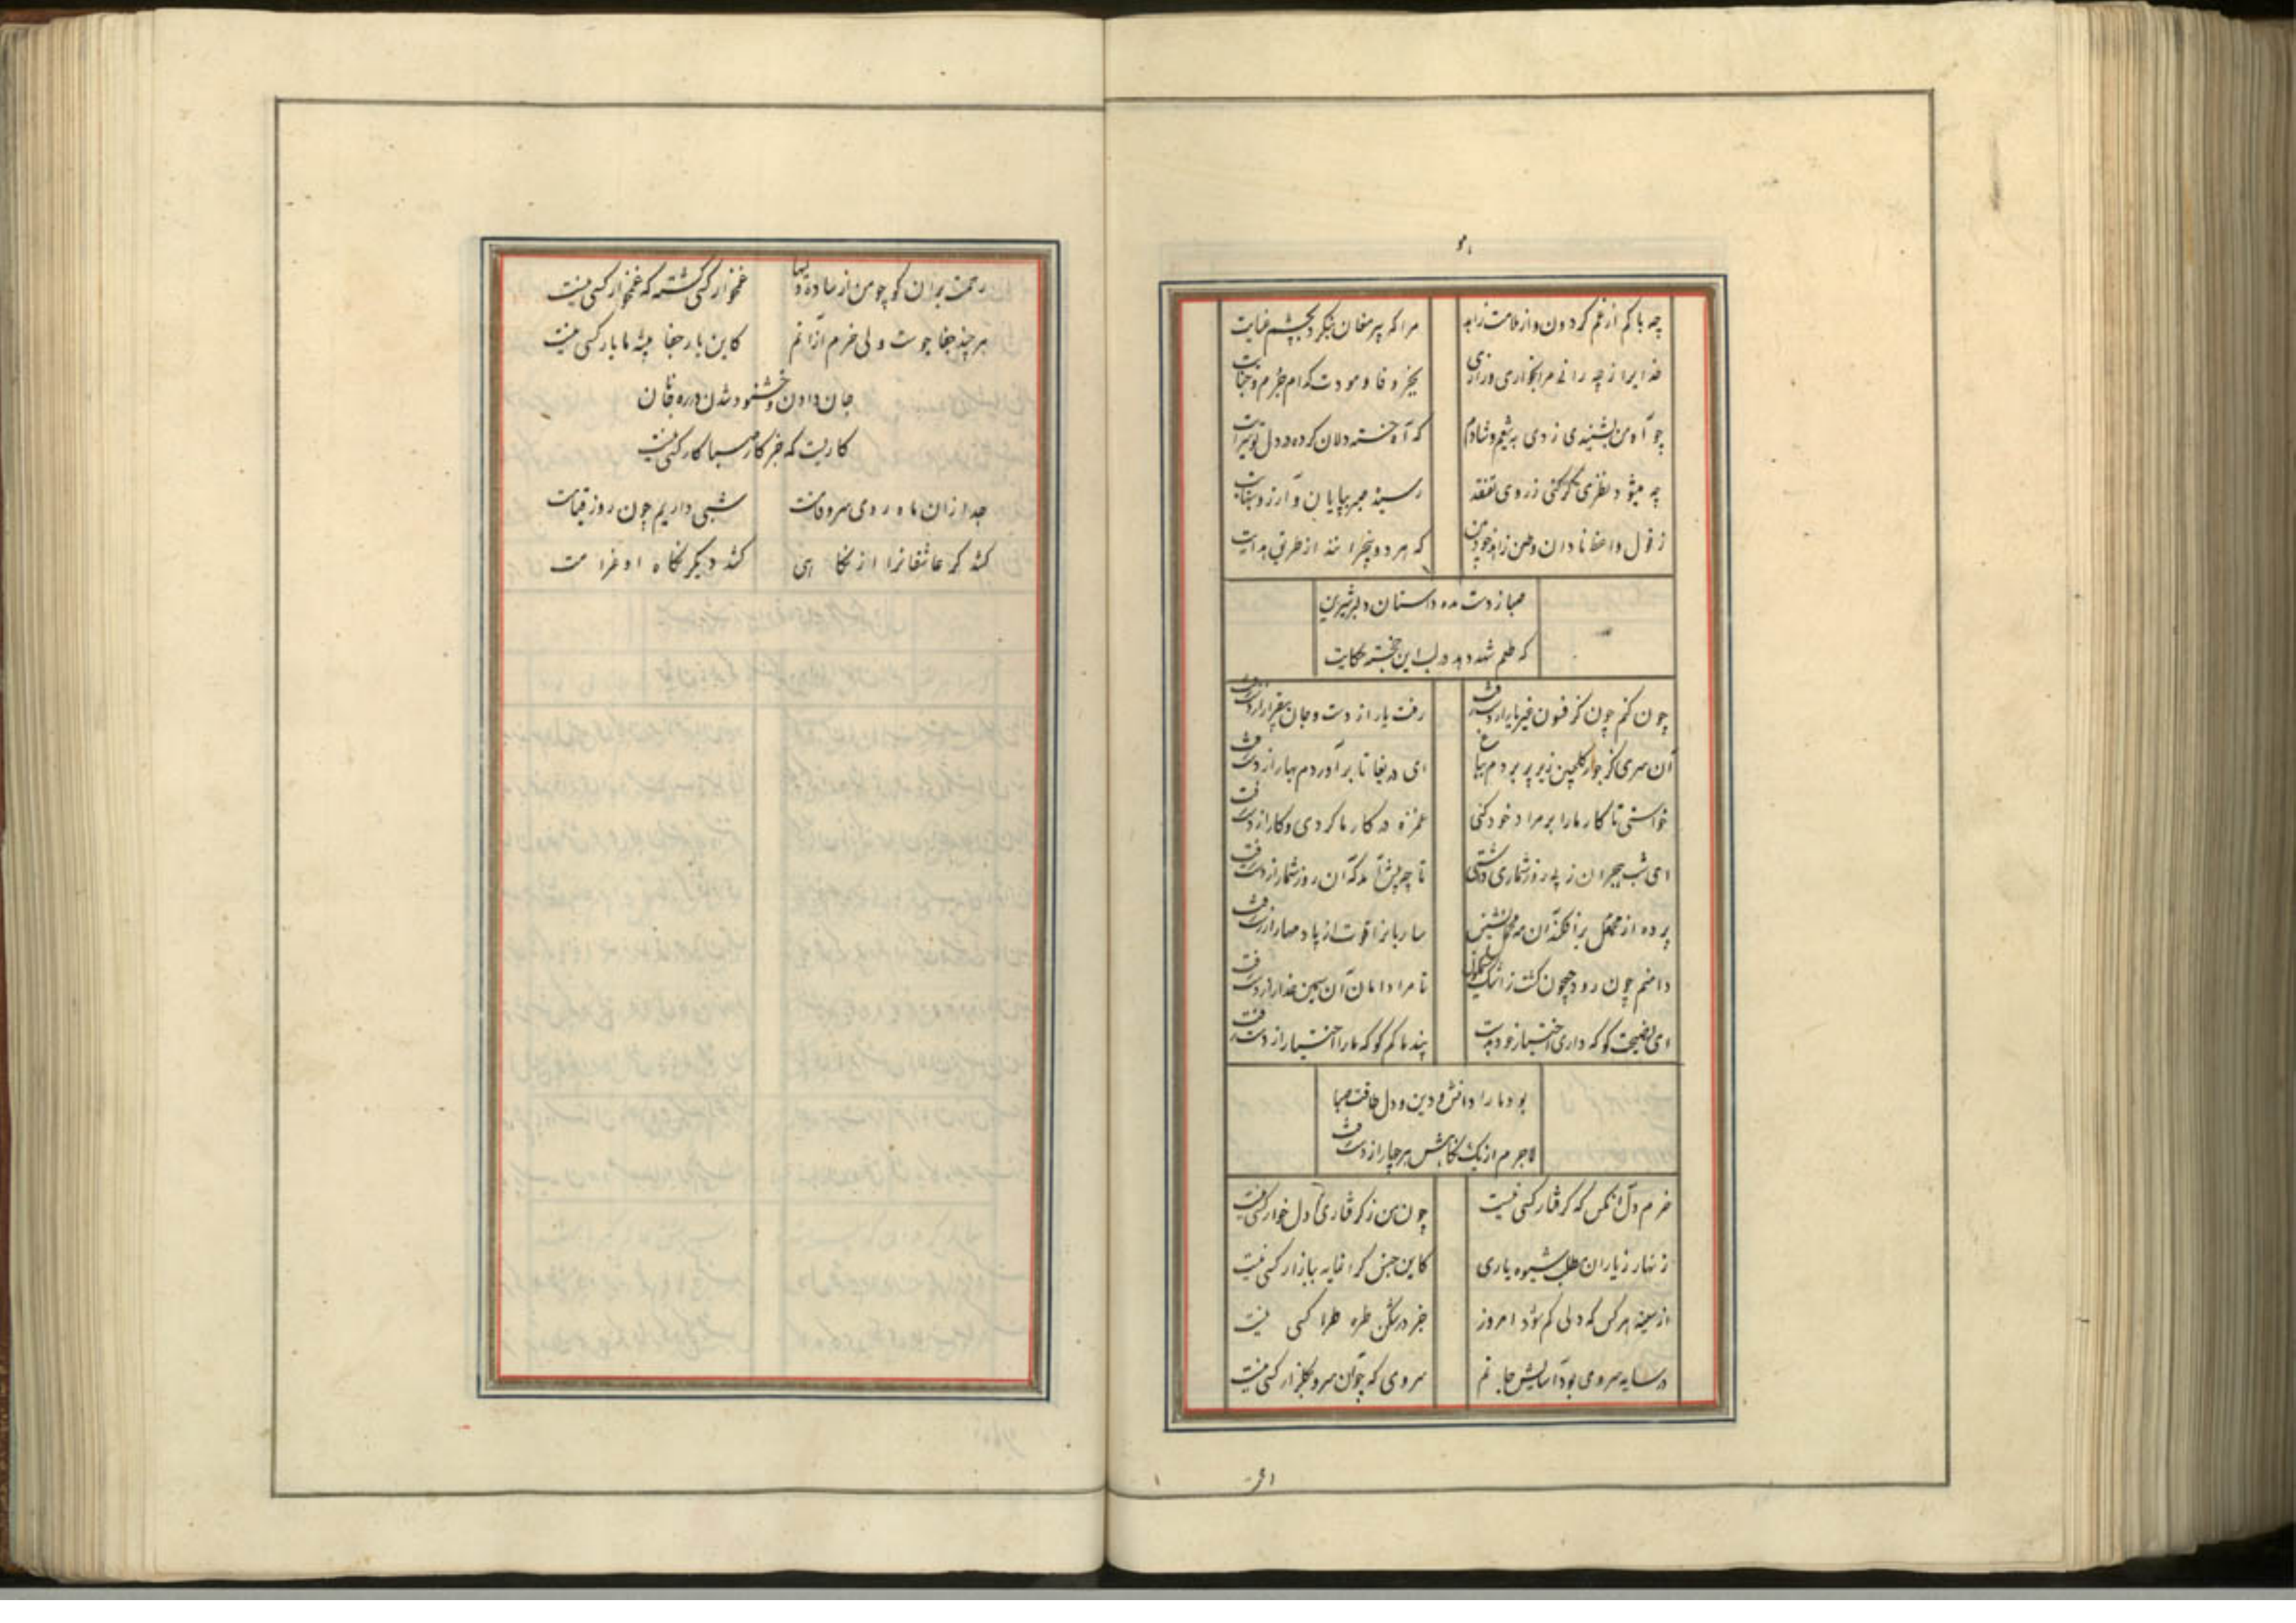 چه باکم از غم گردون و از ملامت زاهد
مرا که پیر مغان بنگرد بچشم عنایت
خدایرا ز چه رانی مرا بخواری و زاری
بجز وفا و مودت کدام جرم و جنایت
چو آه من بشنیدی زدی به تیغم و شادم
که آه خسته دلان کرده در دل تو سرایت
چه میشود نظری گر کنی ز روی تفقد
رسید صبر بپایان و آرزو بنهایت
ز قول واعظ نادان و طعن زاهد خودبین
که هر دو بیخبرانند از طریق هدایت
صبا ز دست مده داستان دلبر شیرین
که طعم شهد دهد در لب این خجسته حکایت
چون کنم چون کز فسون غیر یار از دست رفت
رفت یار از دست و جان بیقرار از دست رفت
آن سری کز جور گلچین زیر پر بردم بباغ
ای دریغا تا برآوردم بهار از دست رفت
خواستی تا کار ما را بر مراد خود کنی
غمزه در کار ما کردی و کار از دست رفت
ای شب هجران ز پی روز شماری داشتی
تا چه پیش آمد که آن روز شمار از دست رفت
پرده از محمل برافکند آن مه محمل نشین
ساربانرا قوت از پا و مهار از دست رفت
دامنم چون رود جیحون گشت ز اشک لاله گون
تا مرا دامان آن سیمین عذار از دست رفت
ای نصیحت گو که داری اختیار خود بدست
پند ما کم گو که ما را اختیار از دست رفت
بود ما را دانش و دین و دل و طاقت صبا
لاجرم از یک نگاهش هر چهار از دست رفت
خرم دل آنکس که گرفتار کسی نیست
چون من ز گرفتاری دل خوار کسی نیست
زنهار ز یاران مطلب شیوه یاری
کاین جنس گرانمایه ببازار کسی نیست
از سینه هر کس که دلی گم شود امروز
جز در شکن طره طرار کسی نیست
در سایه سروی بود آسایش جانم
سروی که چو آن سرو بگلزار کسی نیست
رحمت بر آن کو چو من از ساده دلیها
غمخوار کسی گشته که غمخوار کسی نیست
هر چند جفا جوست ولی خرم از آنم
کاین یار جفا پیشه ما یار کسی نیست
جان دادن و خشنود شدن در ره جانان
کاریست که جز کار صبا کار کسی نیست
جدا زان ماه روی سرو قامت
شبی داریم چون روز قیامت
کشد گر عاشقانرا از نگاهی
کشد دیگر نگاه او غرامت